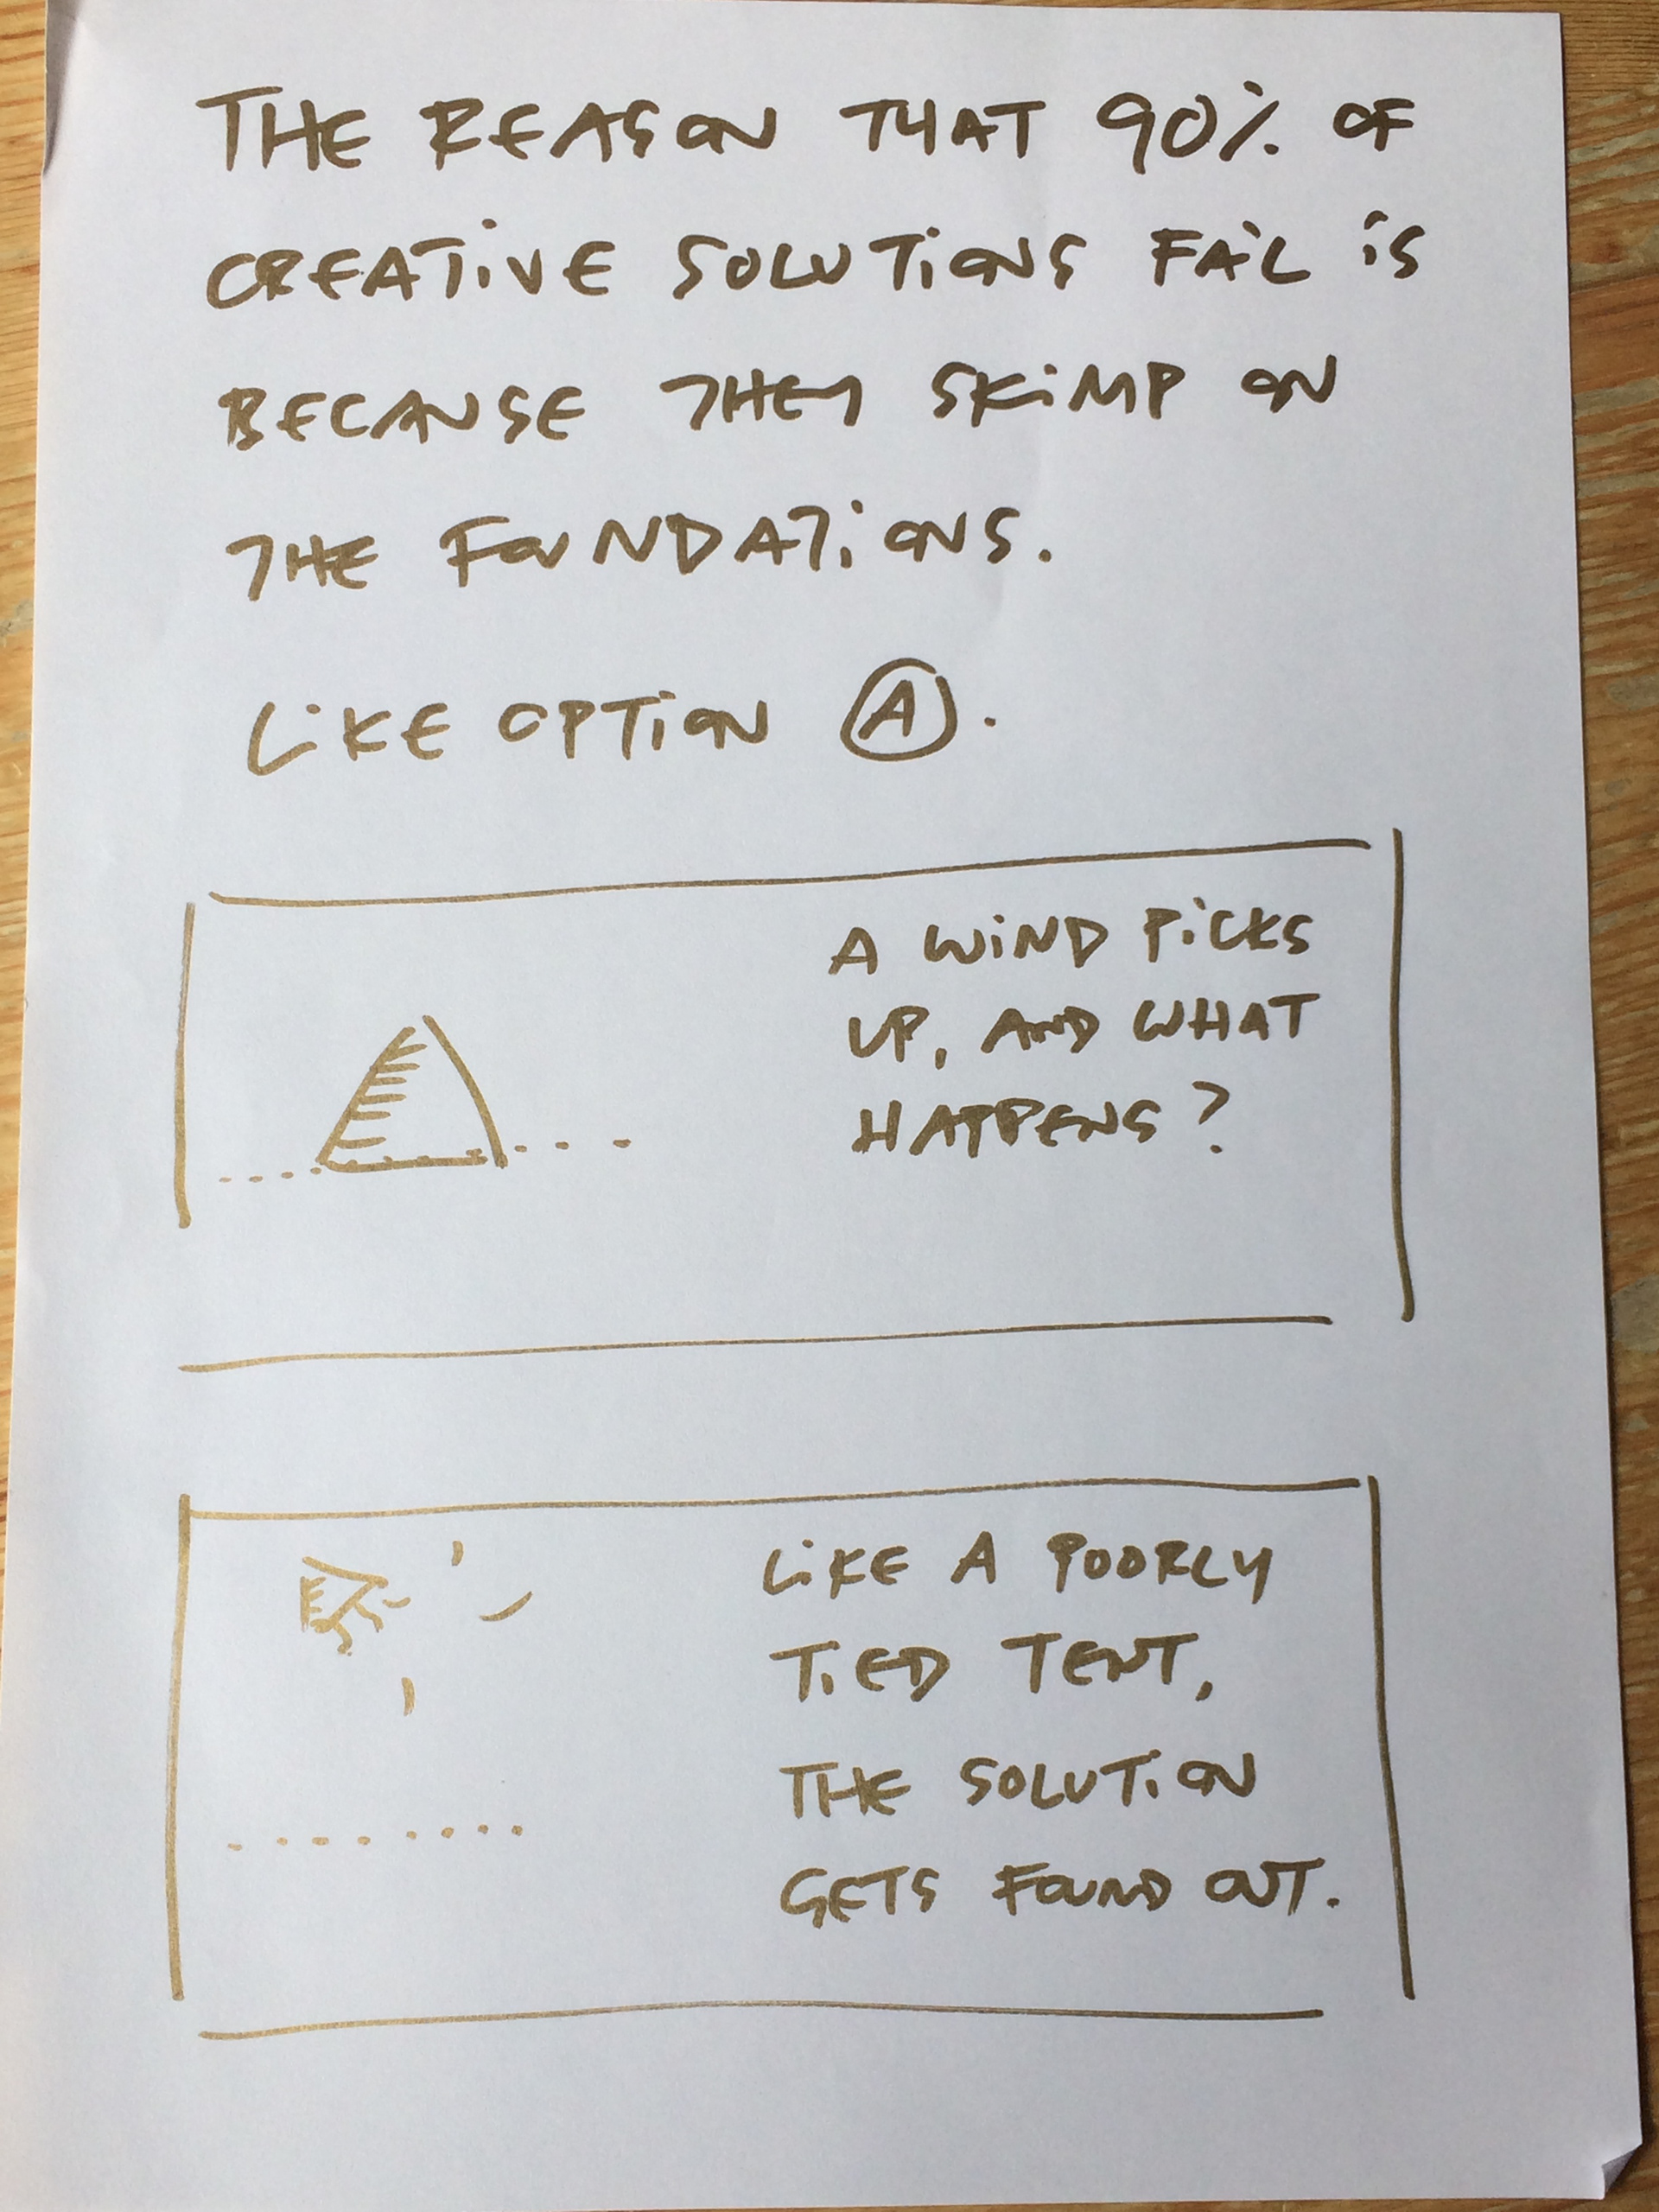 THE REASON THAT 90% OF
CREATIVE SOLUTIONS FAIL IS
BECAUSE THEY SKIMP ON
THE FOUNDATIONS.
LIKE OPTION A.
A WIND PICKS
UP, AND WHAT
HAPPENS?
LIKE A POORLY
TIED TENT,
THE SOLUTION
GETS FOUND OUT.